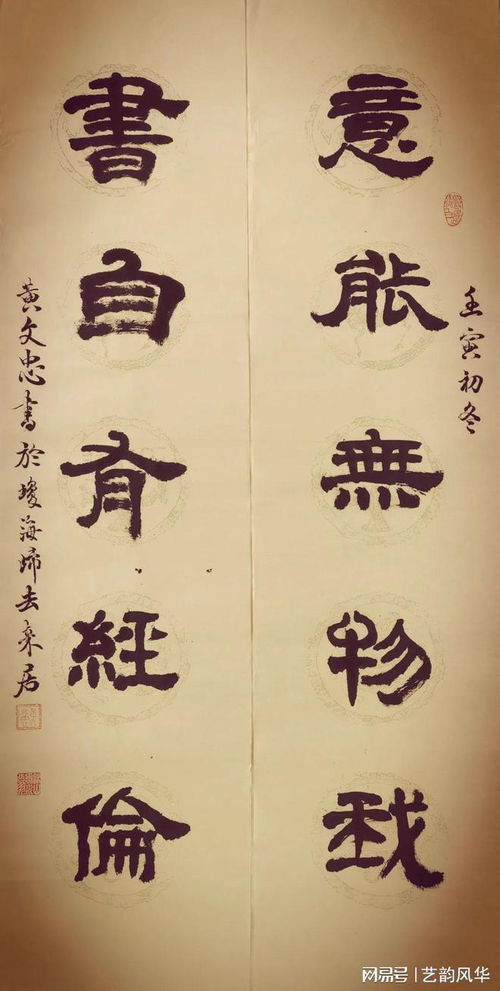 壬寅初冬
意能無物我
書自有經倫
黃文忠書於瓊海歸去來居
网易号 | 艺韵风华